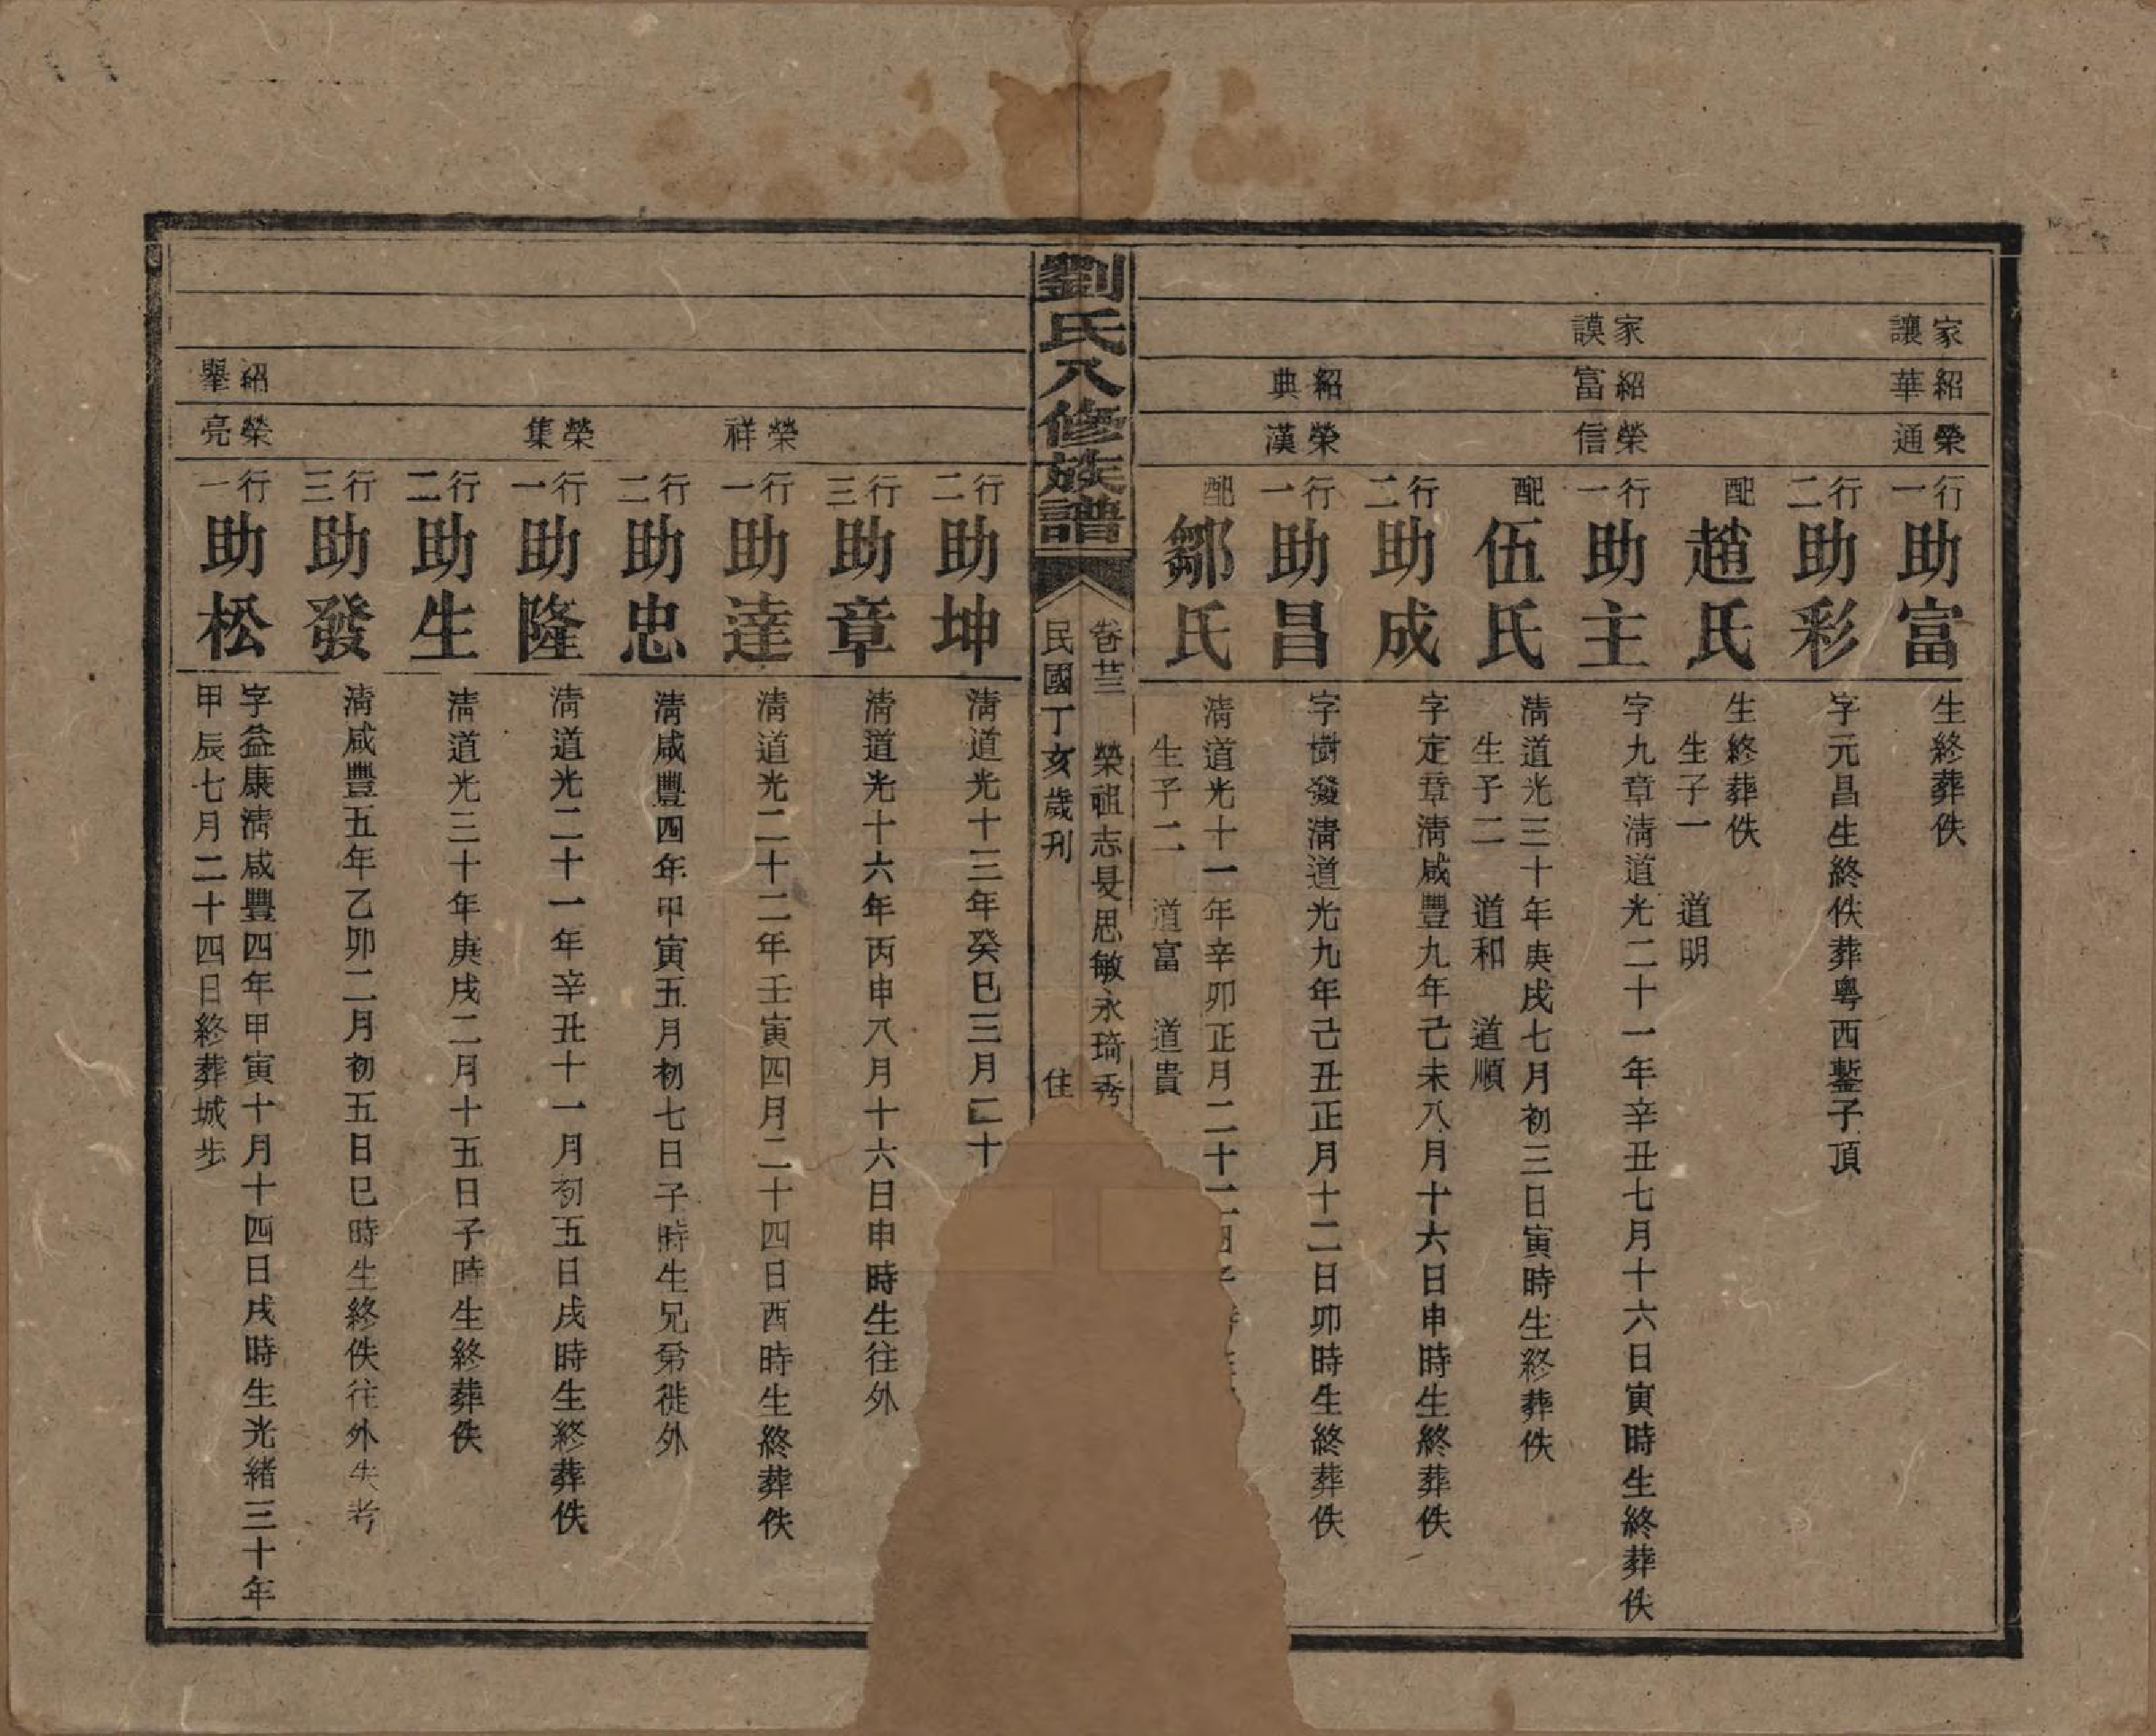 家讓
紹華
榮通
行一
助富
生終葬佚
行二
助彩
字元昌生終佚葬粵西鏨子頂
配
趙氏
生終葬佚
生子一　道明
家謨
紹富
榮信
行一
助主
字九章淸道光二十一年辛丑七月十六日寅時生終葬佚
配
伍氏
淸道光三十年庚戌七月初三日寅時生終葬佚
生子二　道和　道順
行二
助成
字定章淸咸豐九年己未八月十六日申時生終葬佚
紹典
榮漢
行一
助昌
字樹發淸道光九年己丑正月十二日卯時生終葬佚
配
鄒氏
淸道光十一年辛卯正月二十
生子二　道富　道貴
劉氏八修族譜
卷廿三　榮祖志旻思敏永琦秀
民國丁亥歲刊　住
行二
助坤
淸道光十三年癸巳三月二十
行三
助章
淸道光十六年丙申八月十六日申時生往外
榮祥
行一
助達
淸道光二十二年壬寅四月二十四日酉時生終葬佚
行二
助忠
淸咸豐四年甲寅五月初七日子時生兄弟徙外
榮集
行一
助隆
淸道光二十一年辛丑十一月初五日戌時生終葬佚
行二
助生
淸道光三十年庚戌二月十五日子時生終葬佚
行三
助發
淸咸豐五年乙卯二月初五日巳時生終佚往外失考
紹舉
榮亮
行一
助松
字益康淸咸豐四年甲寅十月十四日戌時生光緒三十年
甲辰七月二十四日終葬城步